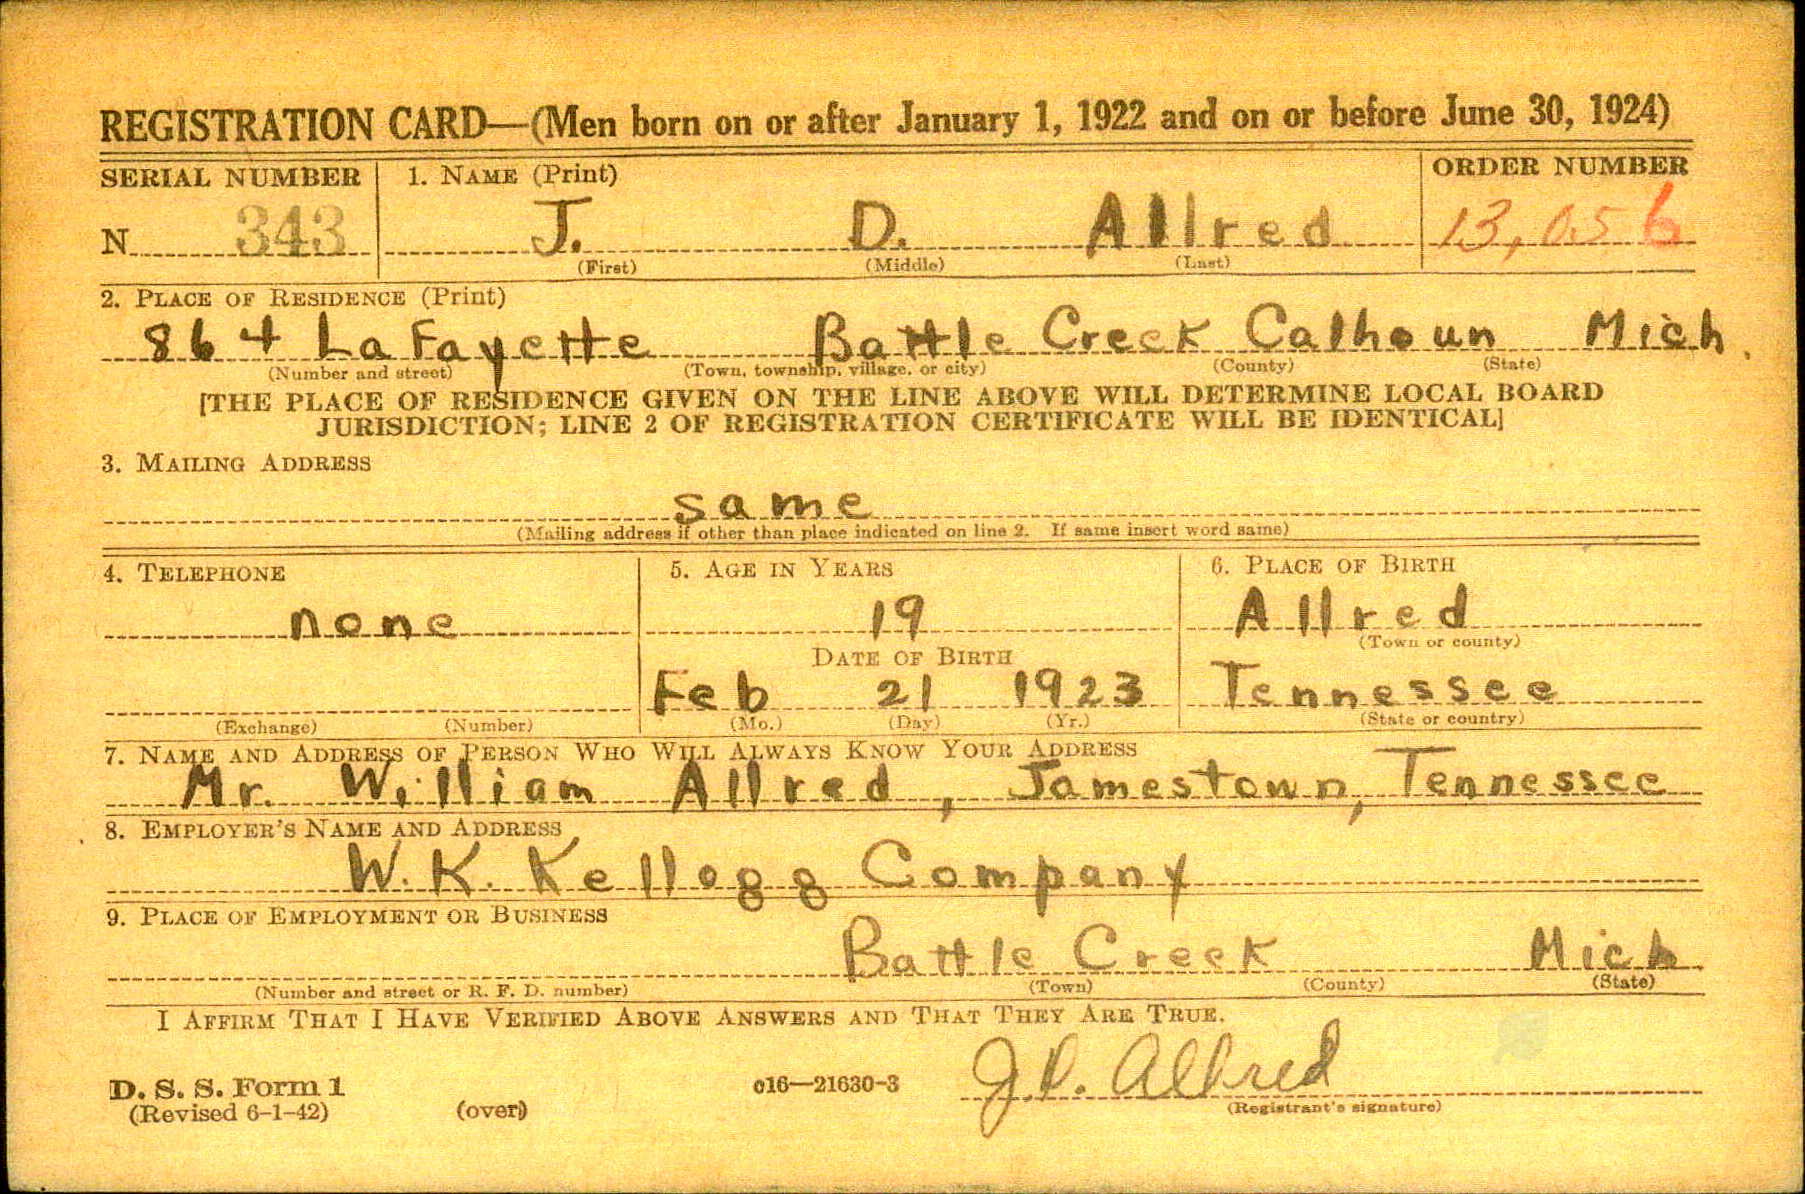 REGISTRATION CARD—(Men born on or after January 1, 1922 and on or before June 30, 1924)
SERIAL NUMBER 1. NAME (Print) ORDER NUMBER
N 343 J. D. Allred 13,056
(First) (Middle) (Last)
2. PLACE OF RESIDENCE (Print)
864 LaFayette Battle Creek Calhoun Mich.
(Number and street) (Town, township, village, or city) (County) (State)
[THE PLACE OF RESIDENCE GIVEN ON THE LINE ABOVE WILL DETERMINE LOCAL BOARD
JURISDICTION; LINE 2 OF REGISTRATION CERTIFICATE WILL BE IDENTICAL]
3. MAILING ADDRESS
same
(Mailing address if other than place indicated on line 2. If same insert word same)
4. TELEPHONE 5. AGE IN YEARS 6. PLACE OF BIRTH
none 19 Allred
(Town or county)
DATE OF BIRTH
Feb 21 1923 Tennessee
(Exchange) (Number) (Mo.) (Day) (Yr.) (State or country)
7. NAME AND ADDRESS OF PERSON WHO WILL ALWAYS KNOW YOUR ADDRESS
Mr. William Allred, Jamestown, Tennessee
8. EMPLOYER'S NAME AND ADDRESS
W. K. Kellogg Company
9. PLACE OF EMPLOYMENT OR BUSINESS
Battle Creek Mich.
(Number and street or R. F. D. number) (Town) (County) (State)
I AFFIRM THAT I HAVE VERIFIED ABOVE ANSWERS AND THAT THEY ARE TRUE.
J.D. Allred
D. S. S. Form 1 c16—21630-3
(Revised 6-1-42) (over) (Registrant's signature)